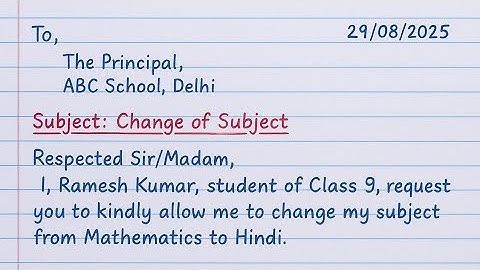 To,
29/08/2025
The Principal,
ABC School, Delhi
Subject: Change of Subject
Respected Sir/Madam,
I, Ramesh Kumar, student of Class 9, request
you to kindly allow me to change my subject
from Mathematics to Hindi.